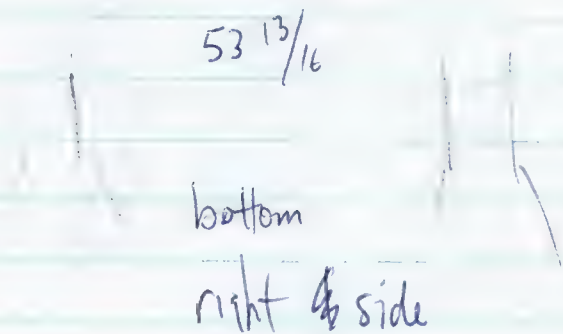 53 13/16
bottom
right side